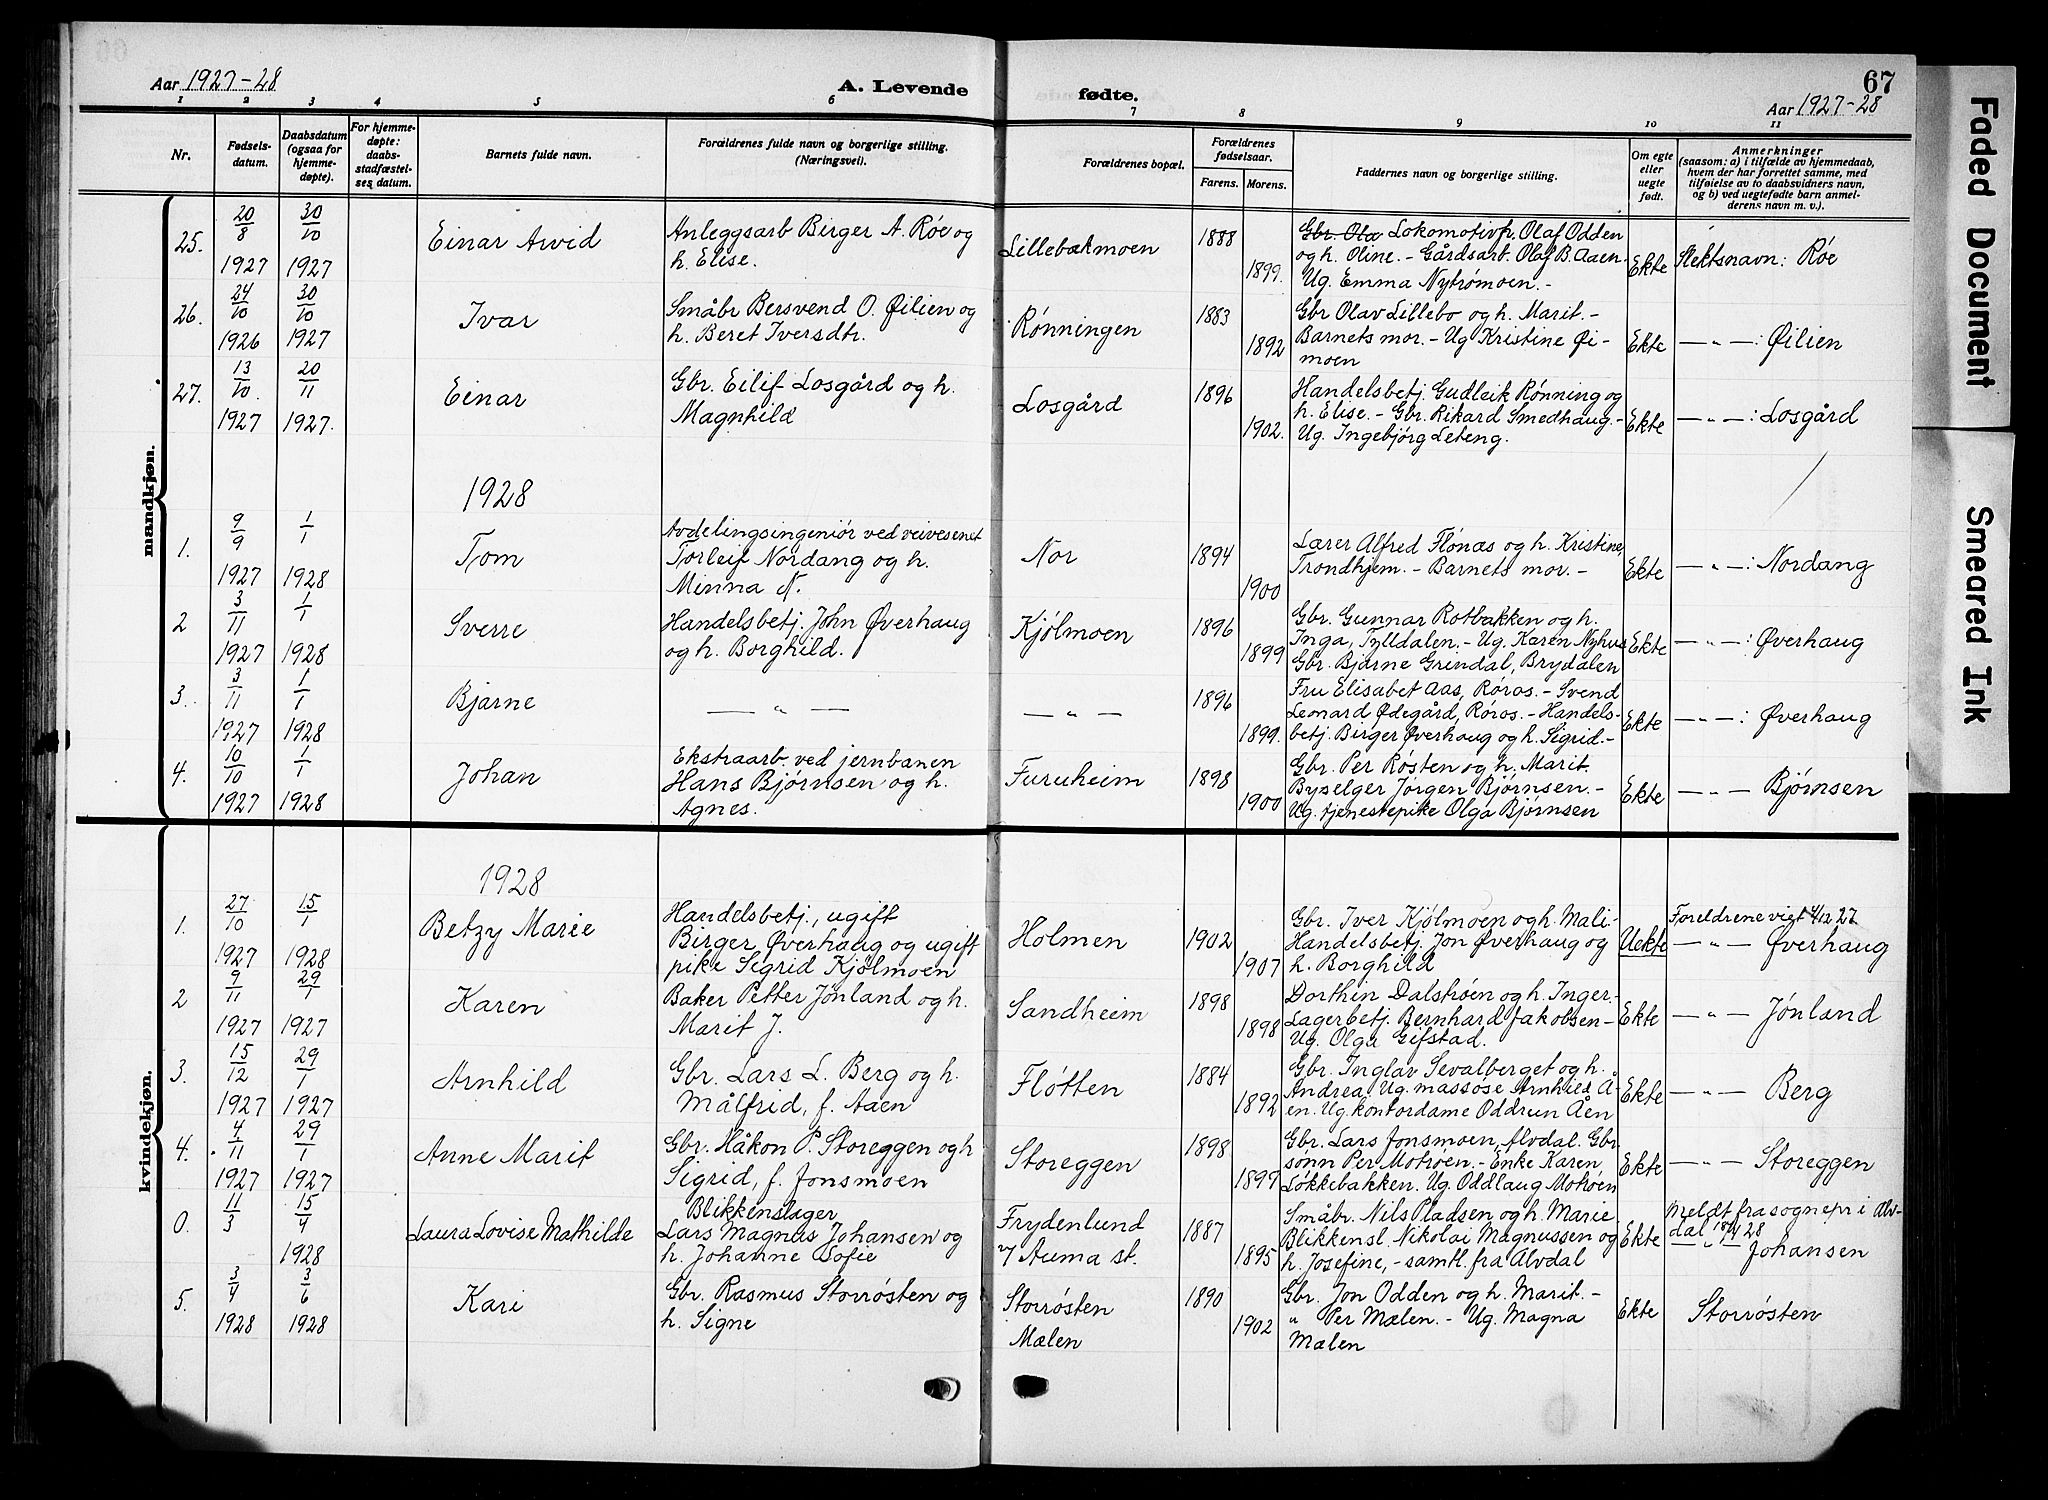 Aar 1927-28
A. Levende fødte.
67
Aar 1927-28
1 2 3 4 5 6 7 8 9 10 11
Nr.
Fødsels-
datum.
Daabsdatum
(ogsaa for
hjemme-
døpte).
For hjemme-
døpte:
daabs-
stadfæstel-
ses datum.
Barnets fulde navn.
Forældrenes fulde navn og borgerlige stilling.
(Næringsvei).
Forældrenes bopæl.
Forældrenes
fødselsaar.
Farens. Morens.
Faddernes navn og borgerlige stilling.
Om egte
eller
uegte
født.
Anmerkninger
(saasom: a) i tilfælde av hjemmedaab,
hvem der har forrettet samme, med
tilføielse av to daabsvidners navn,
og b) ved uegtefødte barn anmel-
derens navn m. v.).
mandkjøn.
25.
20/8 1927
30/10 1927
Einar Arvid
Anleggsarb Birger A. Røe og
h. Elise.
Lillebækmoen
1888
1899.
Gbr. Ola Lokomotivfr. Olaf Odden
og h. Oline. - Gårdsarb. Olaf B. Aaen.
Ug. Emma Nytrømoen. -
Ekte
Slektsnavn: Røe
26.
24/10 1926
30/10 1927
Ivar
Småbr Bersvend O. Øilien og
h. Beret Iversdtr.
Rønningen
1883
1892
Gbr Olav Lillebo og h. Marit. -
Barnets mor. - Ug Kristine Øi-
moen
Ekte
— " — : Øilien
27.
13/10. 1927
20/11 1927.
Einar
Gbr. Eilif Losgård og h.
Magnhild
Losgård
1896
1902.
Handelsbetj. Gudleik Rønning og
h. Elise. - Gbr. Rikard Smedhaug. -
Ug. Ingebjørg Leteng.
Ekte
— " — : Losgård
1928
1.
9/9 1927
1/1 1928
Tom
Avdelingsingeniør ved veivesenet
Torleif Nordang og h.
Minna N.
Nor
1894
1900
Lærer Alfred Flønæs og h. Kristine,
Trondhjem. - Barnets mor. -
Ekte
— " — : Nordang
2
3/11 1927
1/1 1928
Sverre
Handelsbetj. John Øverhaug
og h. Borghild.
Kjølmoen
1896
1899
Gbr. Gunnar Rotbakken og h.
Inga, Tylldalen. - Ug. Karen Nyhus
Gbr. Bjarne Grindal, Brydalen
Ekte
— " — : Øverhaug
3.
3/11 1927
1/1 1928
Bjarne
— " —
— " —
1896
1899.
Fru Elisabet Aas, Røros. - Svend
Leonard Ødegård, Røros. - Handels-
betj. Birger Øverhaug og h. Sigrid. -
Ekte
— " — : Øverhaug
4.
10/10 1927
1/1 1928
Johan
Ekstraarb. ved jernbanen
Hans Bjørnsen og h.
Agnes.
Furuheim
1898
1900
Gbr. Per Røsten og h. Marit.
Byselger Jørgen Bjørnsen. -
Ug. tjenestepike Olga Bjørnsen
Ekte
— " — Bjørnsen
kvindekjøn.
1928
1.
27/10 1927
15/1 1928
Betzy Marie
Handelsbetj., ugift
Birger Øverhaug og ugift
pike Sigrid Kjølmoen
Holmen
1902
1907
Gbr. Iver Kjølmoen og h. Mali -
Handelsbetj. Jon Øverhaug og
h. Borghild
Uekte
Foreldrene viet 4/12 27.
— " — Øverhaug
2
9/11 1927
29/1 1927
Karen
Baker Petter Jønland og h.
Marit J.
Sandheim
1898
1898
Dorthin Dalstrøen og h. Inger. -
Lagerbetj. Bernhard Jakobsen -
Ug. Olga Gifstad.
Ekte
— " — Jønland
3.
15/12 1927
29/1 1927
Arnhild
Gbr. Lars L. Berg og h.
Målfrid, f. Aaen
Fløtten
1884
1892
Gbr. Inglar Sevalberget og h.
Andrea. Ug. massøse Arnhild Å-
en. Ug. kontordame Oddrun Åen
Ekte
— " — Berg
4.
4/11 1927
29/1 1927
Anne Marit
Gbr. Håkon P. Storeggen og h
Sigrid, f. Jonsmoen
Storeggen
1898
1897
Gbr. Lars Jonsmoen, Alvdal. Gbr.
sønn Per Motrøen. - Enke Karen
Løkkebakken. Ug. Oddlaug Motrøen
Ekte
— " — Storeggen
0.
11/3
15/4 1928
Laura Lovise Mathilde
Blikkenslager
Lars Magnus Johansen og
h. Johanne Sofie
Frydenlund
v/ Auma st.
1887
1895
Småbr. Nils Pladsen og h. Marie
Blikkensl. Nikolai Magnussen og
h. Josefine, - samtl. fra Alvdal
Ekte
Meldt fra sognepr. i Alv-
dal 18/4 28
— " — Johansen
5.
3/4 1928
3/6 1928
Kari
Gbr. Rasmus Storrøsten og
h. Signe
Storrøsten
Mælen
1890
1902
Gbr. Jon Odden og h. Marit. -
" Per Mælen. - Ug. Magna
Mælen
Ekte
Storrøsten
Faded Document
Smeared Ink